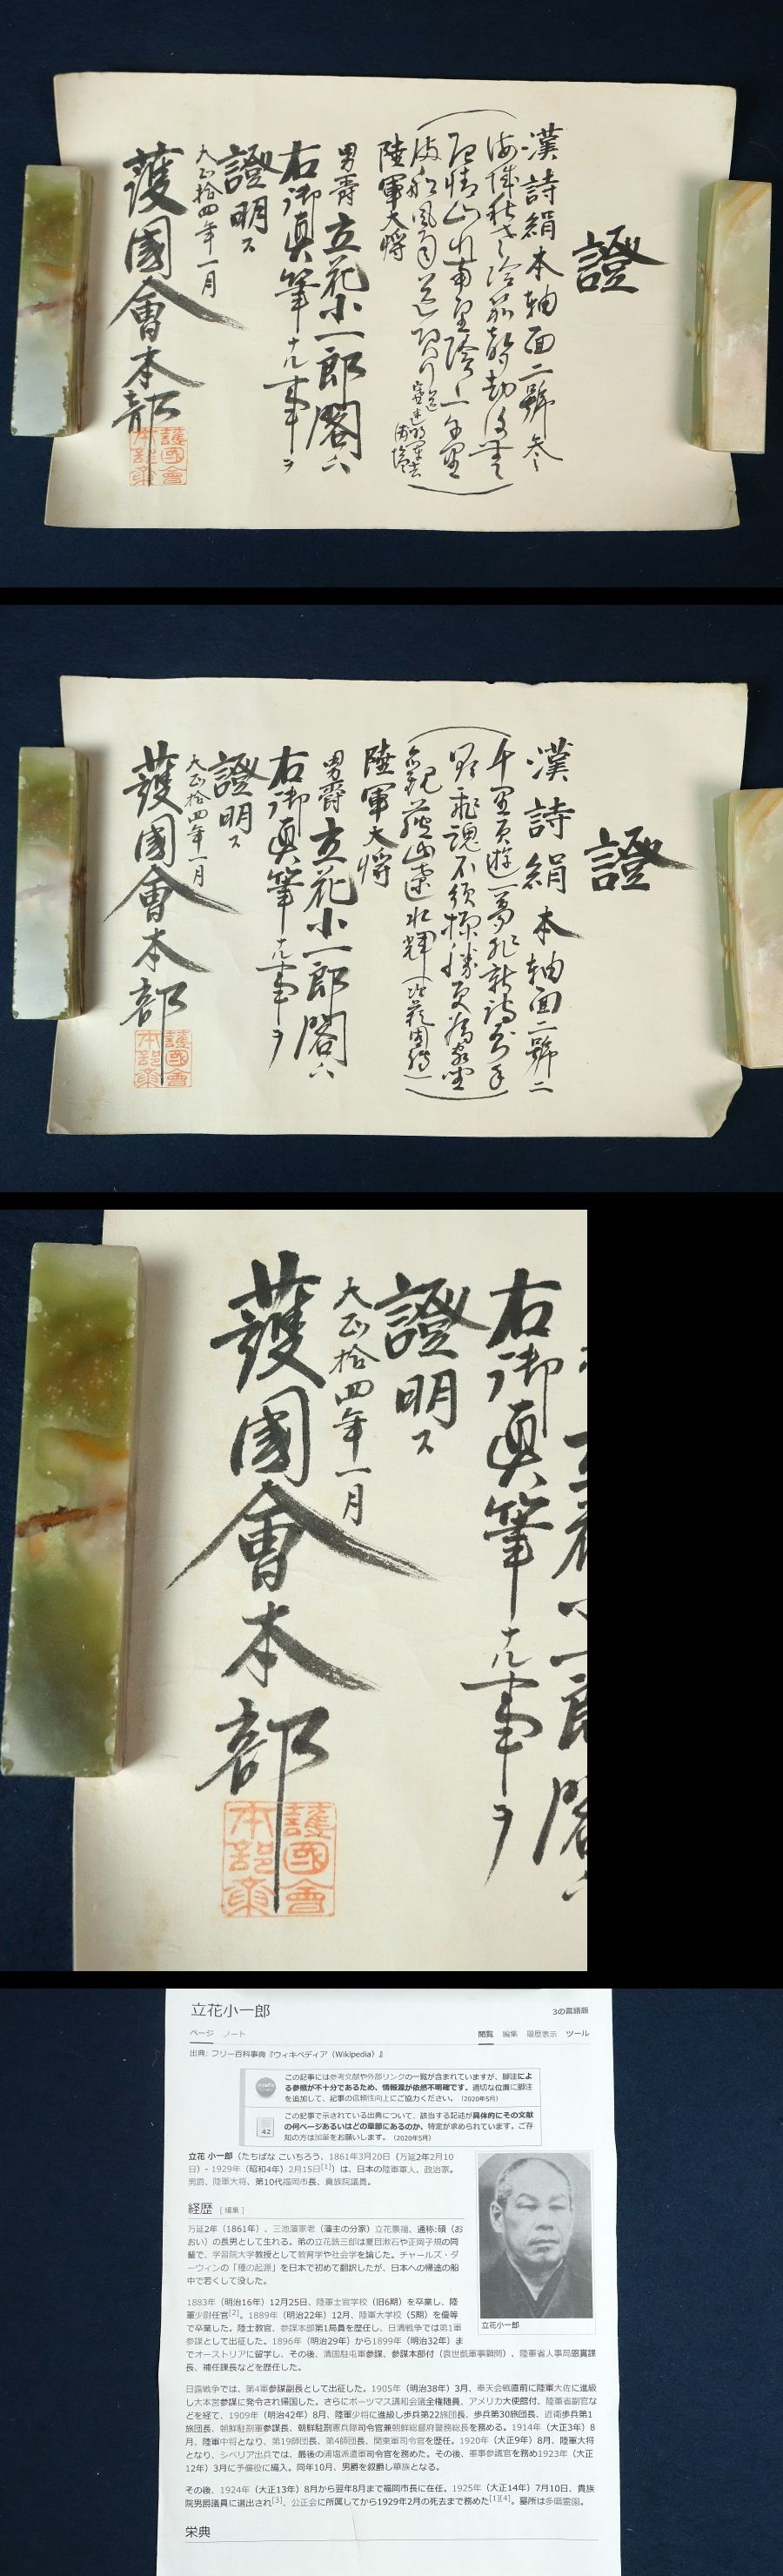 證
漢詩絹本軸面二號参
陸軍大将
男爵立花小一郎閣下
右御真筆ナル事ヲ
證明ス
大正拾四年一月
護國會本部
護國會
本部章
證
漢詩絹本軸面二號二
陸軍大将
男爵立花小一郎閣下
右御真筆ナル事ヲ
證明ス
大正拾四年一月
護國會本部
護國會
本部章
右御真筆ナル事ヲ
證明ス
大正拾四年一月
護國會本部
護國會
本部章
立花小一郎
3の言語版
ページ ノート
閲覧 編集 履歴表示 ツール
出典: フリー百科事典『ウィキペディア（Wikipedia）』
この記事には参考文献や外部リンクの一覧が含まれていますが、脚注によ
る参照が不十分であるため、情報源が依然不明確です。適切な位置に脚注
を追加して、記事の信頼性向上にご協力ください。（2020年5月）
この記事で示されている出典について、該当する記述が具体的にその文献
の何ページあるいはどの章節にあるのか、特定が求められています。ご存
知の方は加筆をお願いします。（2020年5月）
立花 小一郎（たちばな こいちろう、1861年3月20日（万延2年2月10
日）- 1929年（昭和4年）2月15日[1]）は、日本の陸軍軍人、政治家。
男爵、陸軍大将、第10代福岡市長、貴族院議員。
経歴 [編集]
万延2年（1861年）、三池藩家老（藩主の分家）立花景福、通称:碩（お
おい）の長男として生れる。弟の立花銑三郎は夏目漱石や正岡子規の同
輩で、学習院大学教授として教育学や社会学を論じた。チャールズ・ダ
ーウィンの「種の起源」を日本で初めて翻訳したが、日本への帰途の船
中で若くして没した。
立花小一郎
1883年（明治16年）12月25日、陸軍士官学校（旧6期）を卒業し、陸
軍少尉任官[2]。1889年（明治22年）12月、陸軍大学校（5期）を優等
で卒業した。陸士教官、参謀本部第1局員を歴任し、日清戦争では第1軍
参謀として出征した。1896年（明治29年）から1899年（明治32年）ま
でオーストリアに留学し、その後、清国駐屯軍参謀、参謀本部付（袁世凱軍事顧問）、陸軍省人事局恩賞課
長、補任課長などを歴任した。
日露戦争では、第4軍参謀副長として出征した。1905年（明治38年）3月、奉天会戦直前に陸軍大佐に進級
し大本営参謀に発令され帰国した。さらにポーツマス講和会議全権随員、アメリカ大使館付、陸軍省副官な
どを経て、1909年（明治42年）8月、陸軍少将に進級し歩兵第22旅団長、歩兵第30旅団長、近衛歩兵第1
旅団長、朝鮮駐剳軍参謀長、朝鮮駐剳憲兵隊司令官兼朝鮮総督府警務総長を務める。1914年（大正3年）8
月、陸軍中将となり、第19師団長、第4師団長、関東軍司令官を歴任。1920年（大正9年）8月、陸軍大将
となり、シベリア出兵では、最後の浦塩派遣軍司令官を務めた。その後、軍事参議官を務め1923年（大正
12年）3月に予備役に編入。同年10月、男爵を叙爵し華族となる。
その後、1924年（大正13年）8月から翌年8月まで福岡市長に在任。1925年（大正14年）7月10日、貴族
院男爵議員に選出され[3]、公正会に所属してから1929年2月の死去まで務めた[1][4]。墓所は多磨霊園。
栄典